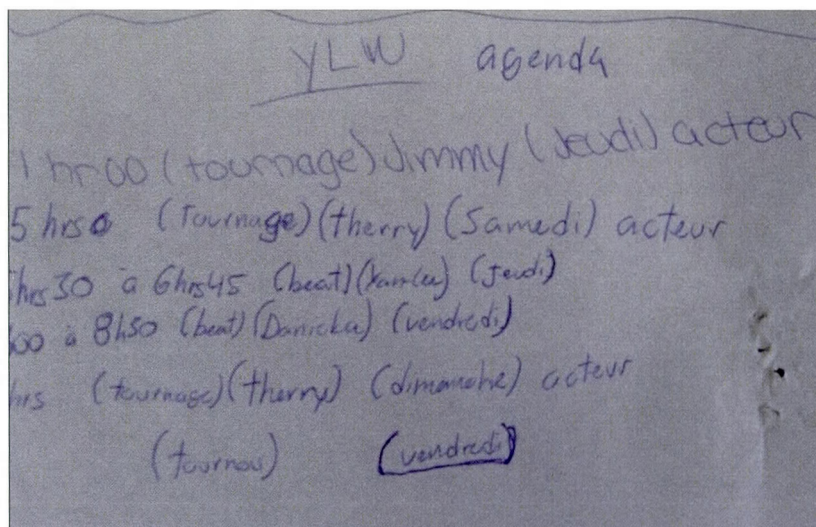 YLW agenda
1 hr00 (tournage) Jimmy (Jeudi) acteur
5 hrs (Tournage) (therry) (Samedi) acteur
hrs30 à 6hrs45 (beat) (Jeudi)
00 à 8h50 (beat) (Danicka) (vendredi)
hrs (tournage) (therry) (dimanche) acteur
(tournou) (vendredi)